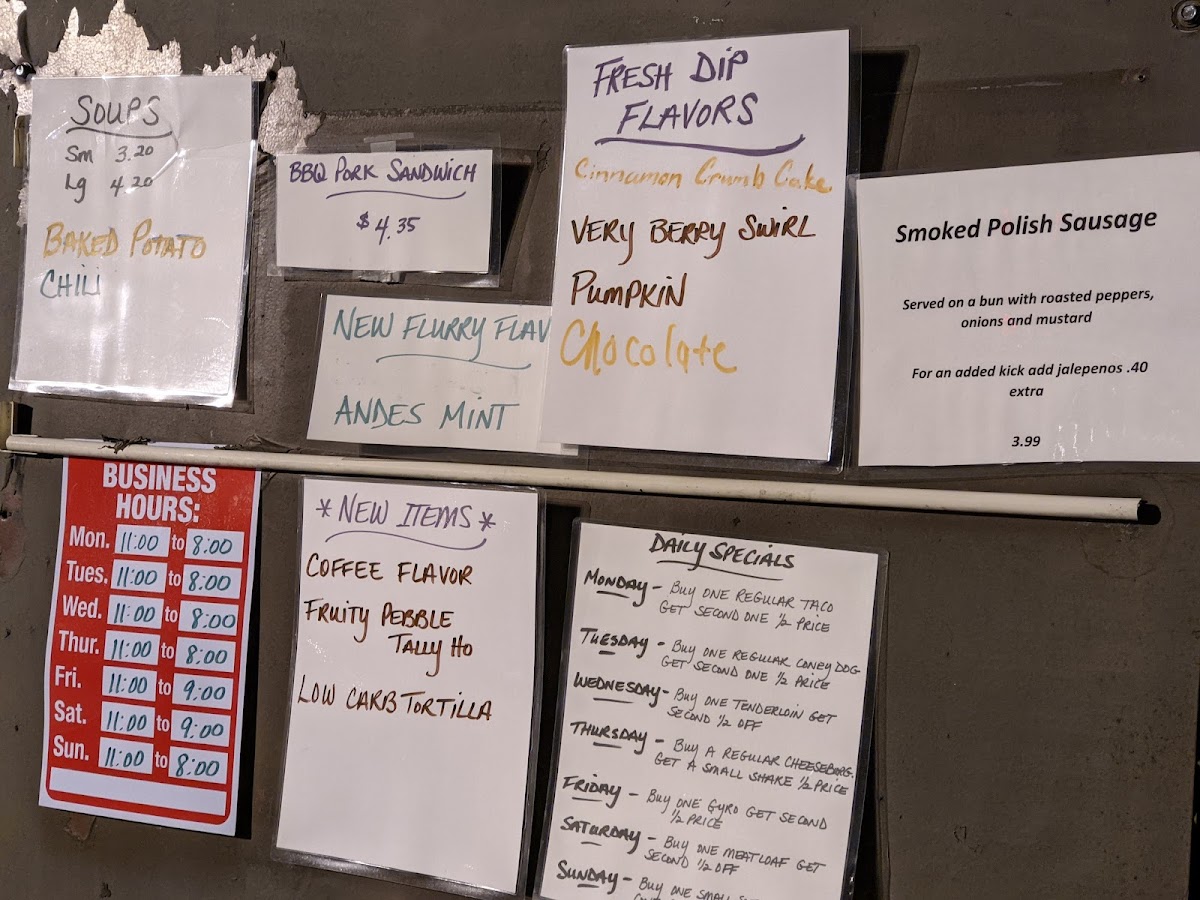 SOUPS
Sm 3.20
Lg 4.20
BAKED POTATO
CHILI
BBQ PORK SANDWICH
$4.35
NEW FLURRY FLAV
ANDES MINT
FRESH DIP
FLAVORS
Cinnamon Crumb Cake
VERY BERRY SWIRL
PUMPKIN
Chocolate
Smoked Polish Sausage
Served on a bun with roasted peppers,
onions and mustard
For an added kick add jalepenos .40
extra
3.99
BUSINESS
HOURS:
Mon. 11:00 to 8:00
Tues. 11:00 to 8:00
Wed. 11:00 to 8:00
Thur. 11:00 to 8:00
Fri. 11:00 to 9:00
Sat. 11:00 to 9:00
Sun. 11:00 to 8:00
*NEW ITEMS*
COFFEE FLAVOR
FRUITY PEBBLE
TALLY HO
LOW CARB TORTILLA
DAILY SPECIALS
MONDAY - BUY ONE REGULAR TACO
GET SECOND ONE 1/2 PRICE
TUESDAY - BUY ONE REGULAR CONEY DOG
GET SECOND ONE 1/2 PRICE
WEDNESDAY - BUY ONE TENDERLOIN GET
SECOND 1/2 OFF
THURSDAY - BUY A REGULAR CHEESEBURG.
GET A SMALL SHAKE 1/2 PRICE
FRIDAY - BUY ONE GYRO GET SECOND
1/2 PRICE
SATURDAY - BUY ONE MEATLOAF GET
SECOND 1/2 OFF
SUNDAY - BUY ONE SMALL